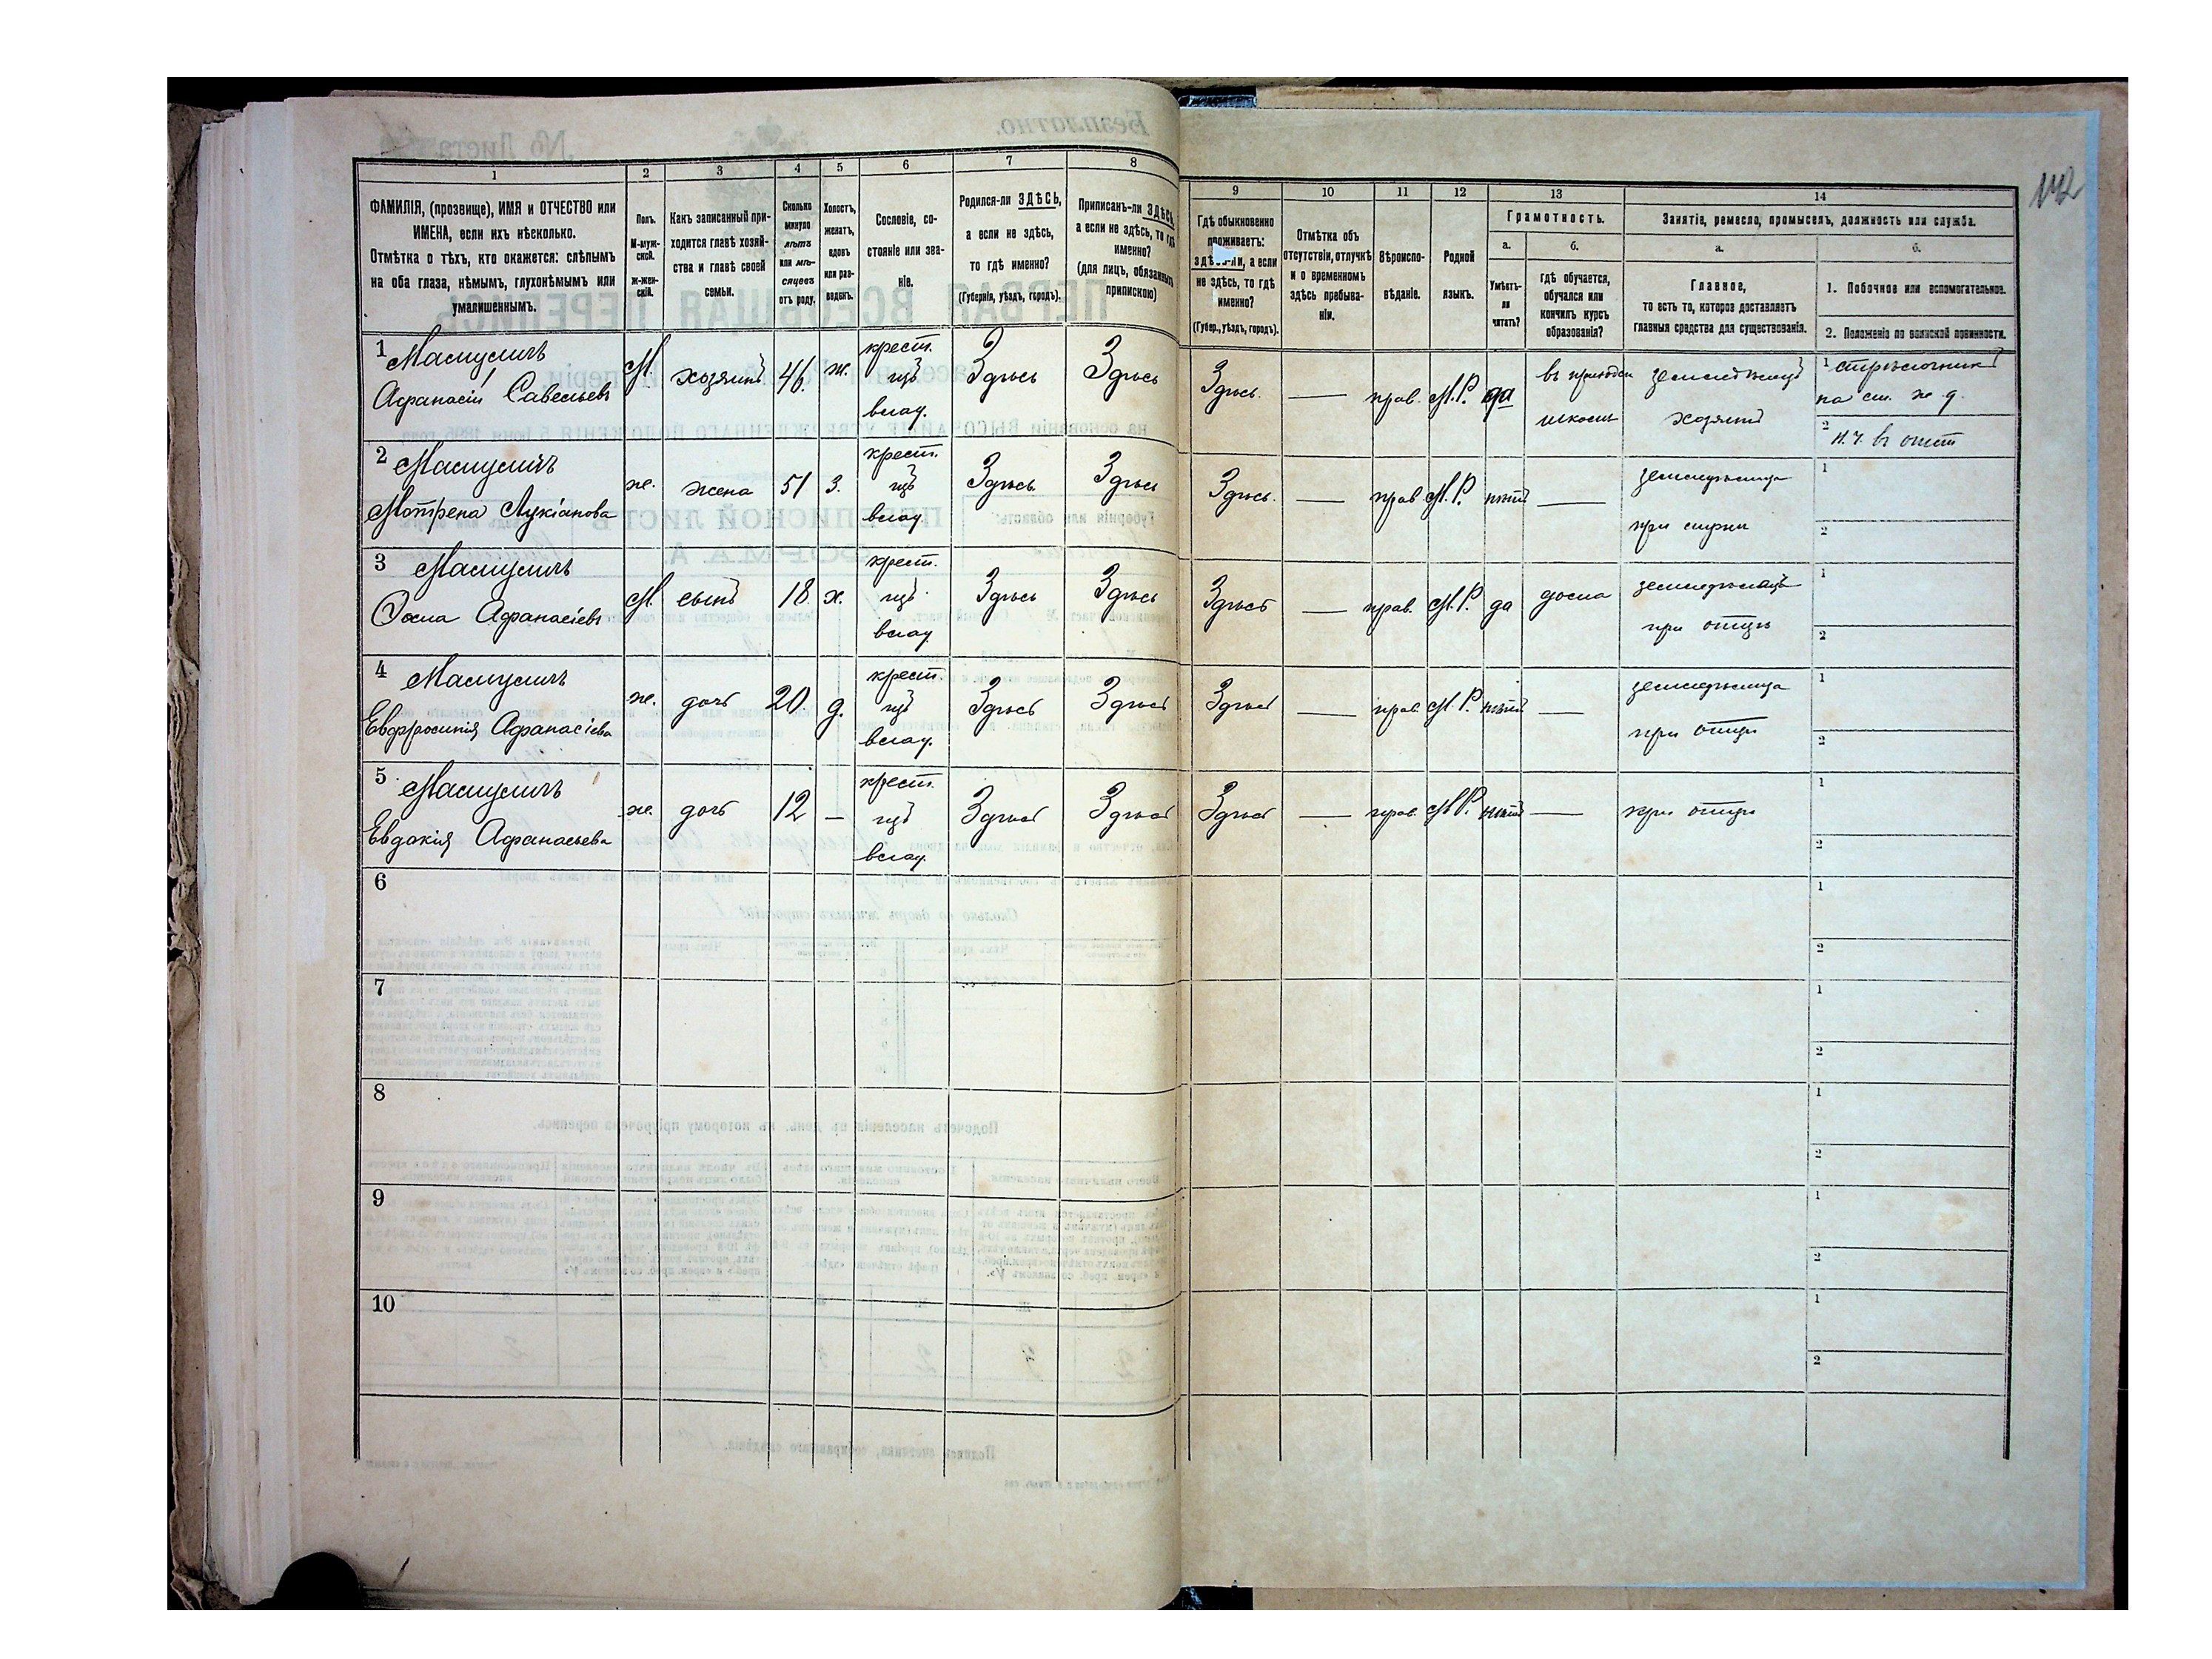 142
1 2 3 4 5 6 7 8 9 10 11 12 13 14
ФАМИЛІЯ, (прозвище), ИМЯ и ОТЧЕСТВО или
ИМЕНА, если ихъ нѣсколько.
Отмѣтка о тѣхъ, кто окажется: слѣпымъ
на оба глаза, нѣмымъ, глухонѣмымъ или
умалишеннымъ.
Полъ.
М-муж-
ской.
ж-жен-
скій.
Какъ записанный при-
ходится главѣ хозяй-
ства и главѣ своей
семьи.
Сколько
минуло
лѣтъ
или мѣ-
сяцевъ
отъ роду.
Холостъ,
женатъ,
вдовъ
или раз-
веденъ.
Сословіе, со-
стояніе или зва-
ніе.
Родился-ли ЗДѢСЬ,
а если не здѣсь,
то гдѣ именно?
(Губернія, уѣздъ, городъ).
Приписанъ-ли ЗДѢСЬ,
а если не здѣсь, то гдѣ
именно?
(для лицъ, обязанныхъ
припискою)
Гдѣ обыкновенно
проживаетъ:
здѣсь-ли, а если
не здѣсь, то гдѣ
именно?
(Губер., уѣздъ, городъ).
Отмѣтка объ
отсутствіи, отлучкѣ
и о временномъ
здѣсь пребыва-
ніи.
Вѣроиспо-
вѣданіе.
Родной
языкъ.
Грамотность.
а.
Умѣетъ-
ли
читать?
б.
Гдѣ обучается,
обучался или
кончилъ курсъ
образованія?
Занятіе, ремесло, промыселъ, должность или служба.
а.
Главное,
то есть то, которое доставляетъ
главныя средства для существованія.
б.
1. Побочное или вспомогательное.
2. Положеніе по воинской повинности.
1
Афанасій Савельевъ
М. хозяинъ 46. ж.
крест.
изъ
влад.
Здѣсь Здѣсь Здѣсь. — прав. М.Р. да
школѣ
хозяинъ
1 стрѣлочникъ
на ст. ж. д.
2
2
Мотрена Лукіанова
ж. жена 51 з.
крест.
изъ
влад.
Здѣсь. Здѣсь Здѣсь. — прав. М.Р. нѣтъ —
1
2
3
Афанасіевъ
М. сынъ 18. х.
крест.
изъ
влад.
Здѣсь Здѣсь Здѣсь — прав. М.Р. да дома
при отцѣ
1
2
4
Евфросинія Афанасіева
ж. дочь 20. д.
крест.
изъ
влад.
Здѣсь Здѣсь Здѣсь — прав. М.Р. нѣтъ —
при отцѣ
1
2
5
Евдокія Афанасьева
ж. дочь 12 —
крест.
изъ
влад.
Здѣсь Здѣсь Здѣсь — прав. М.Р. нѣтъ — при отцѣ
1
2
6
1
2
7
1
2
8
1
2
9
1
2
10
1
2